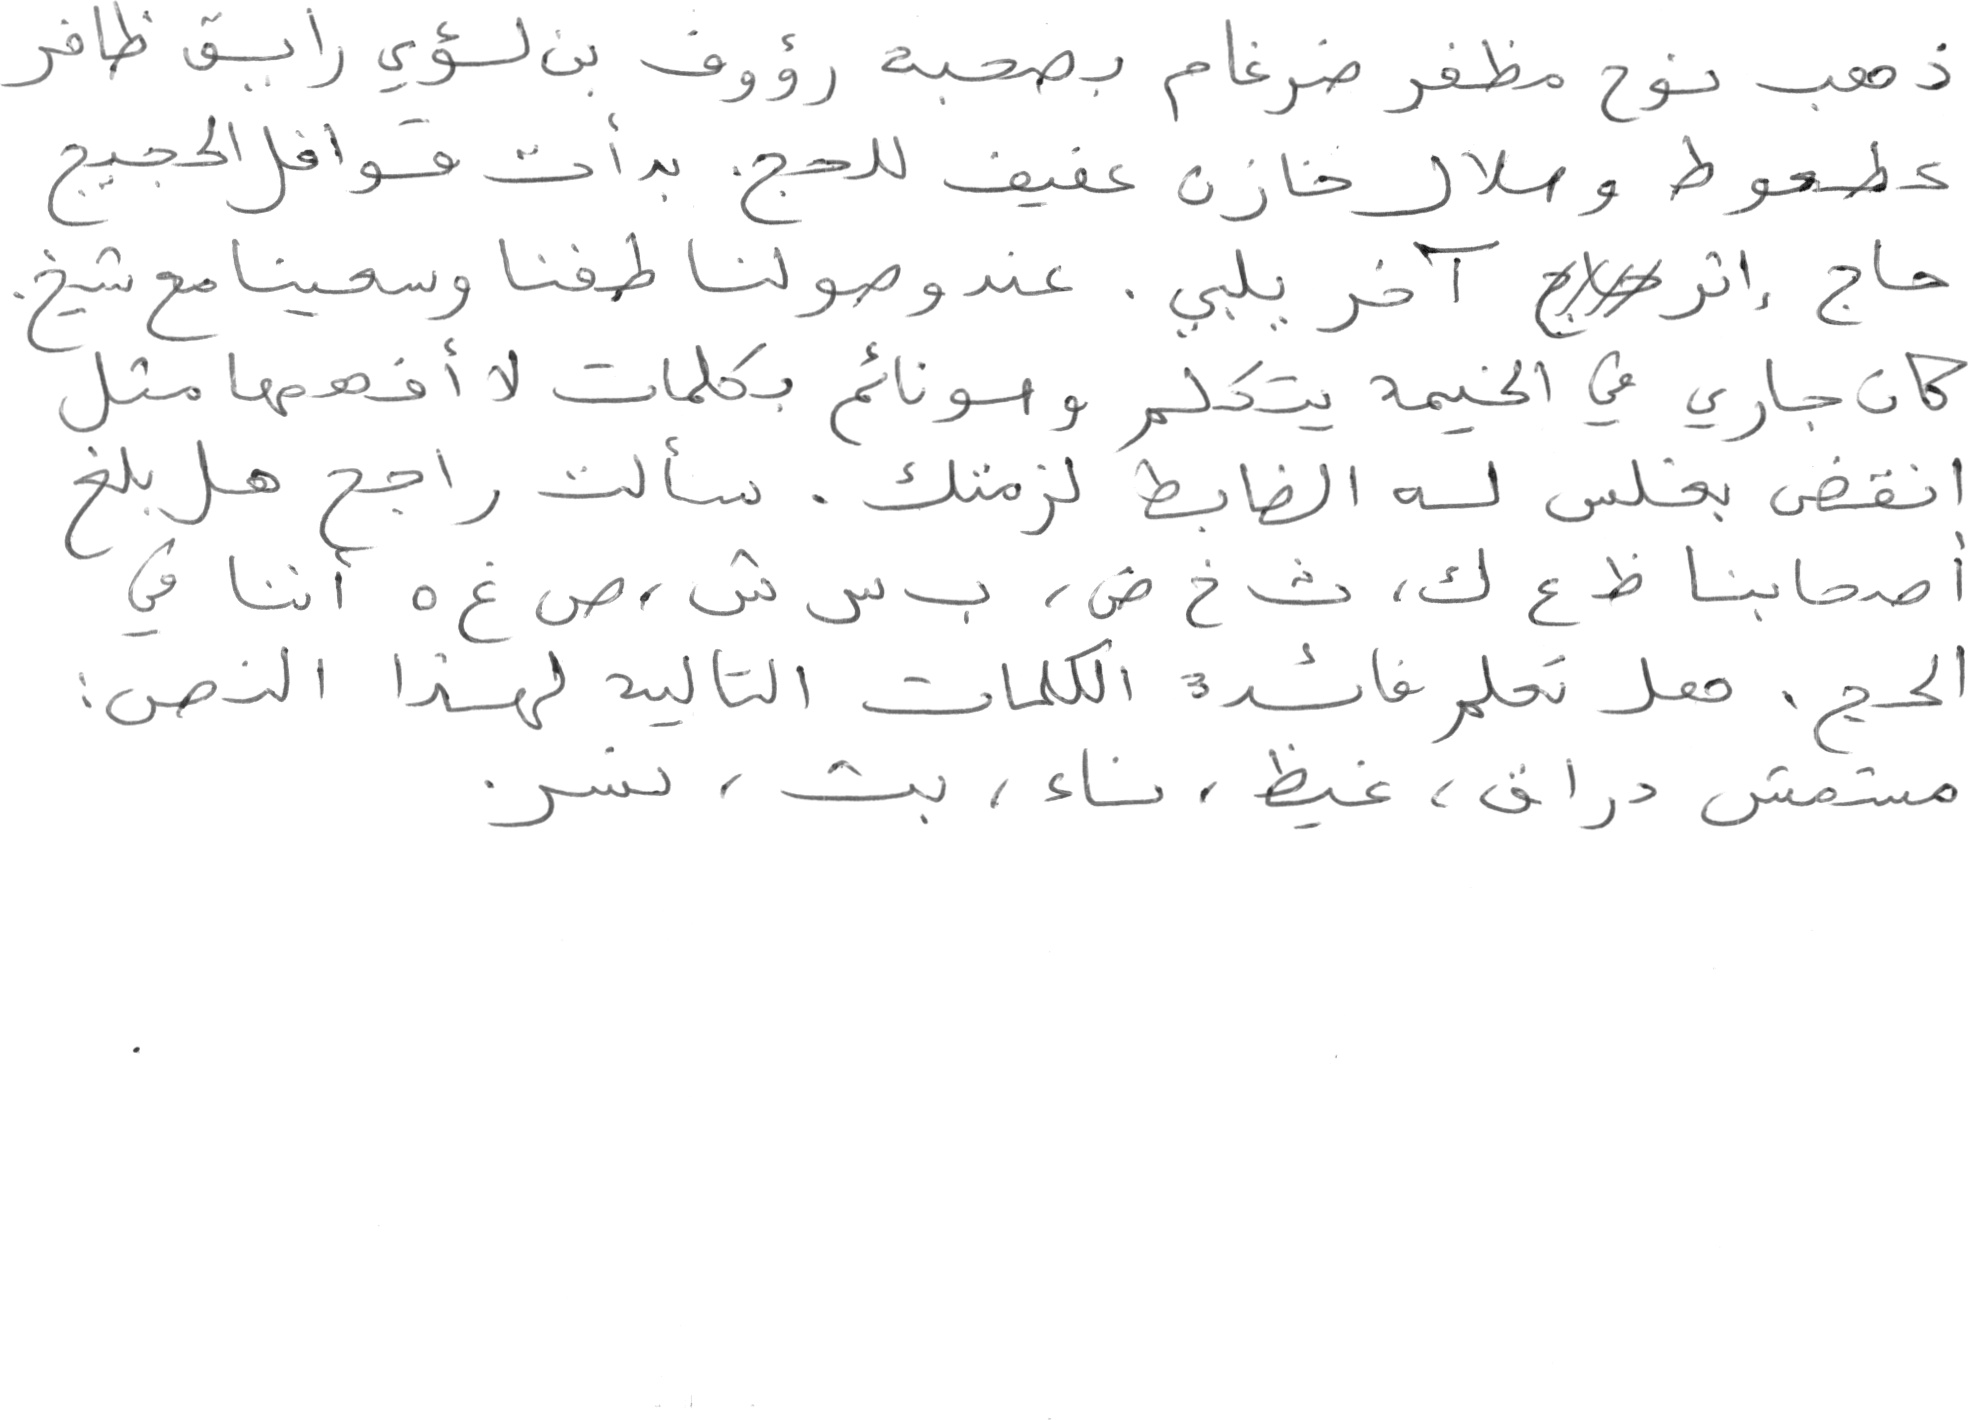 ذهب نوح مظفر ضرغام بصحبة رؤوف بن لؤي رايق ظافر
عطعوط وهلال خازن عفيف للحج. بدأت قوافل الحجيج
حاج إثر آخر يلبي. عند وصولنا طفنا وسعينا مع شيخ.
كان جاري في الخيمه يتكلم وهو نائم بكلمات لا أفهمها مثل
انقض بغلس لسه الضابط لزمتك. سألت راجح هل بلغ
أصحابنا ظ ع ك، ث خ ض، ب س ش، ص غ ه أننا في
الحج. هل تعلم فائدة الكلمات التاليه لهذا النص:
مستمتش دراق، غيظ، ناء، بث، نسر.